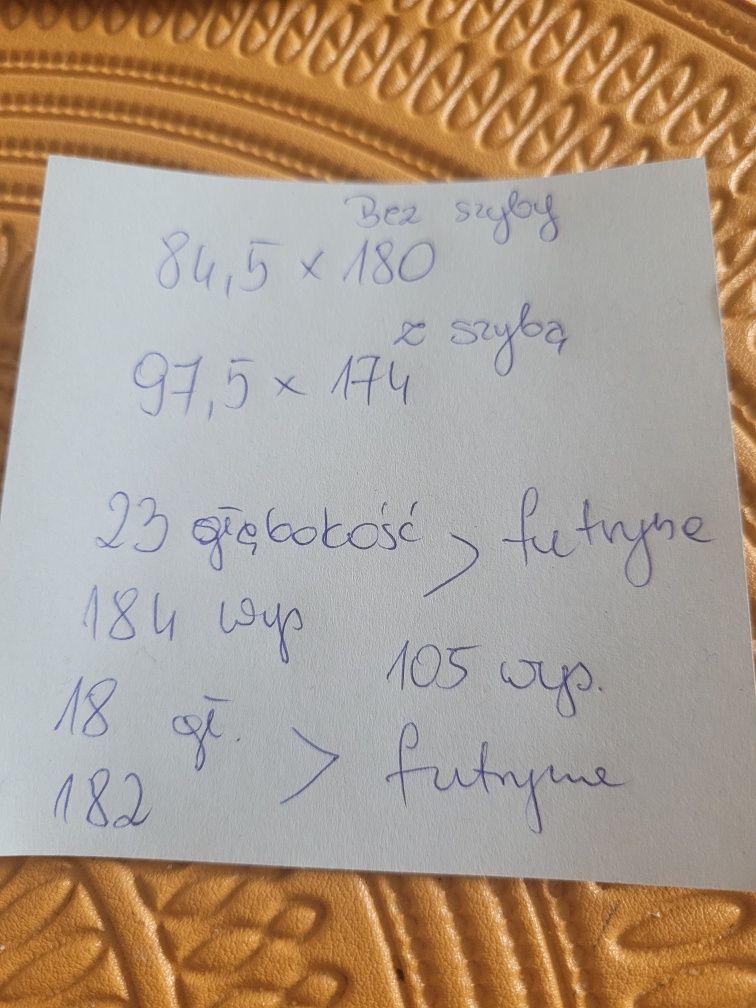 Bez szyby
84,5 x 180
z szybą
97,5 x 174
23 głębokość > futryne
184 wyp
105 wyp.
18 gł. > futryne
182